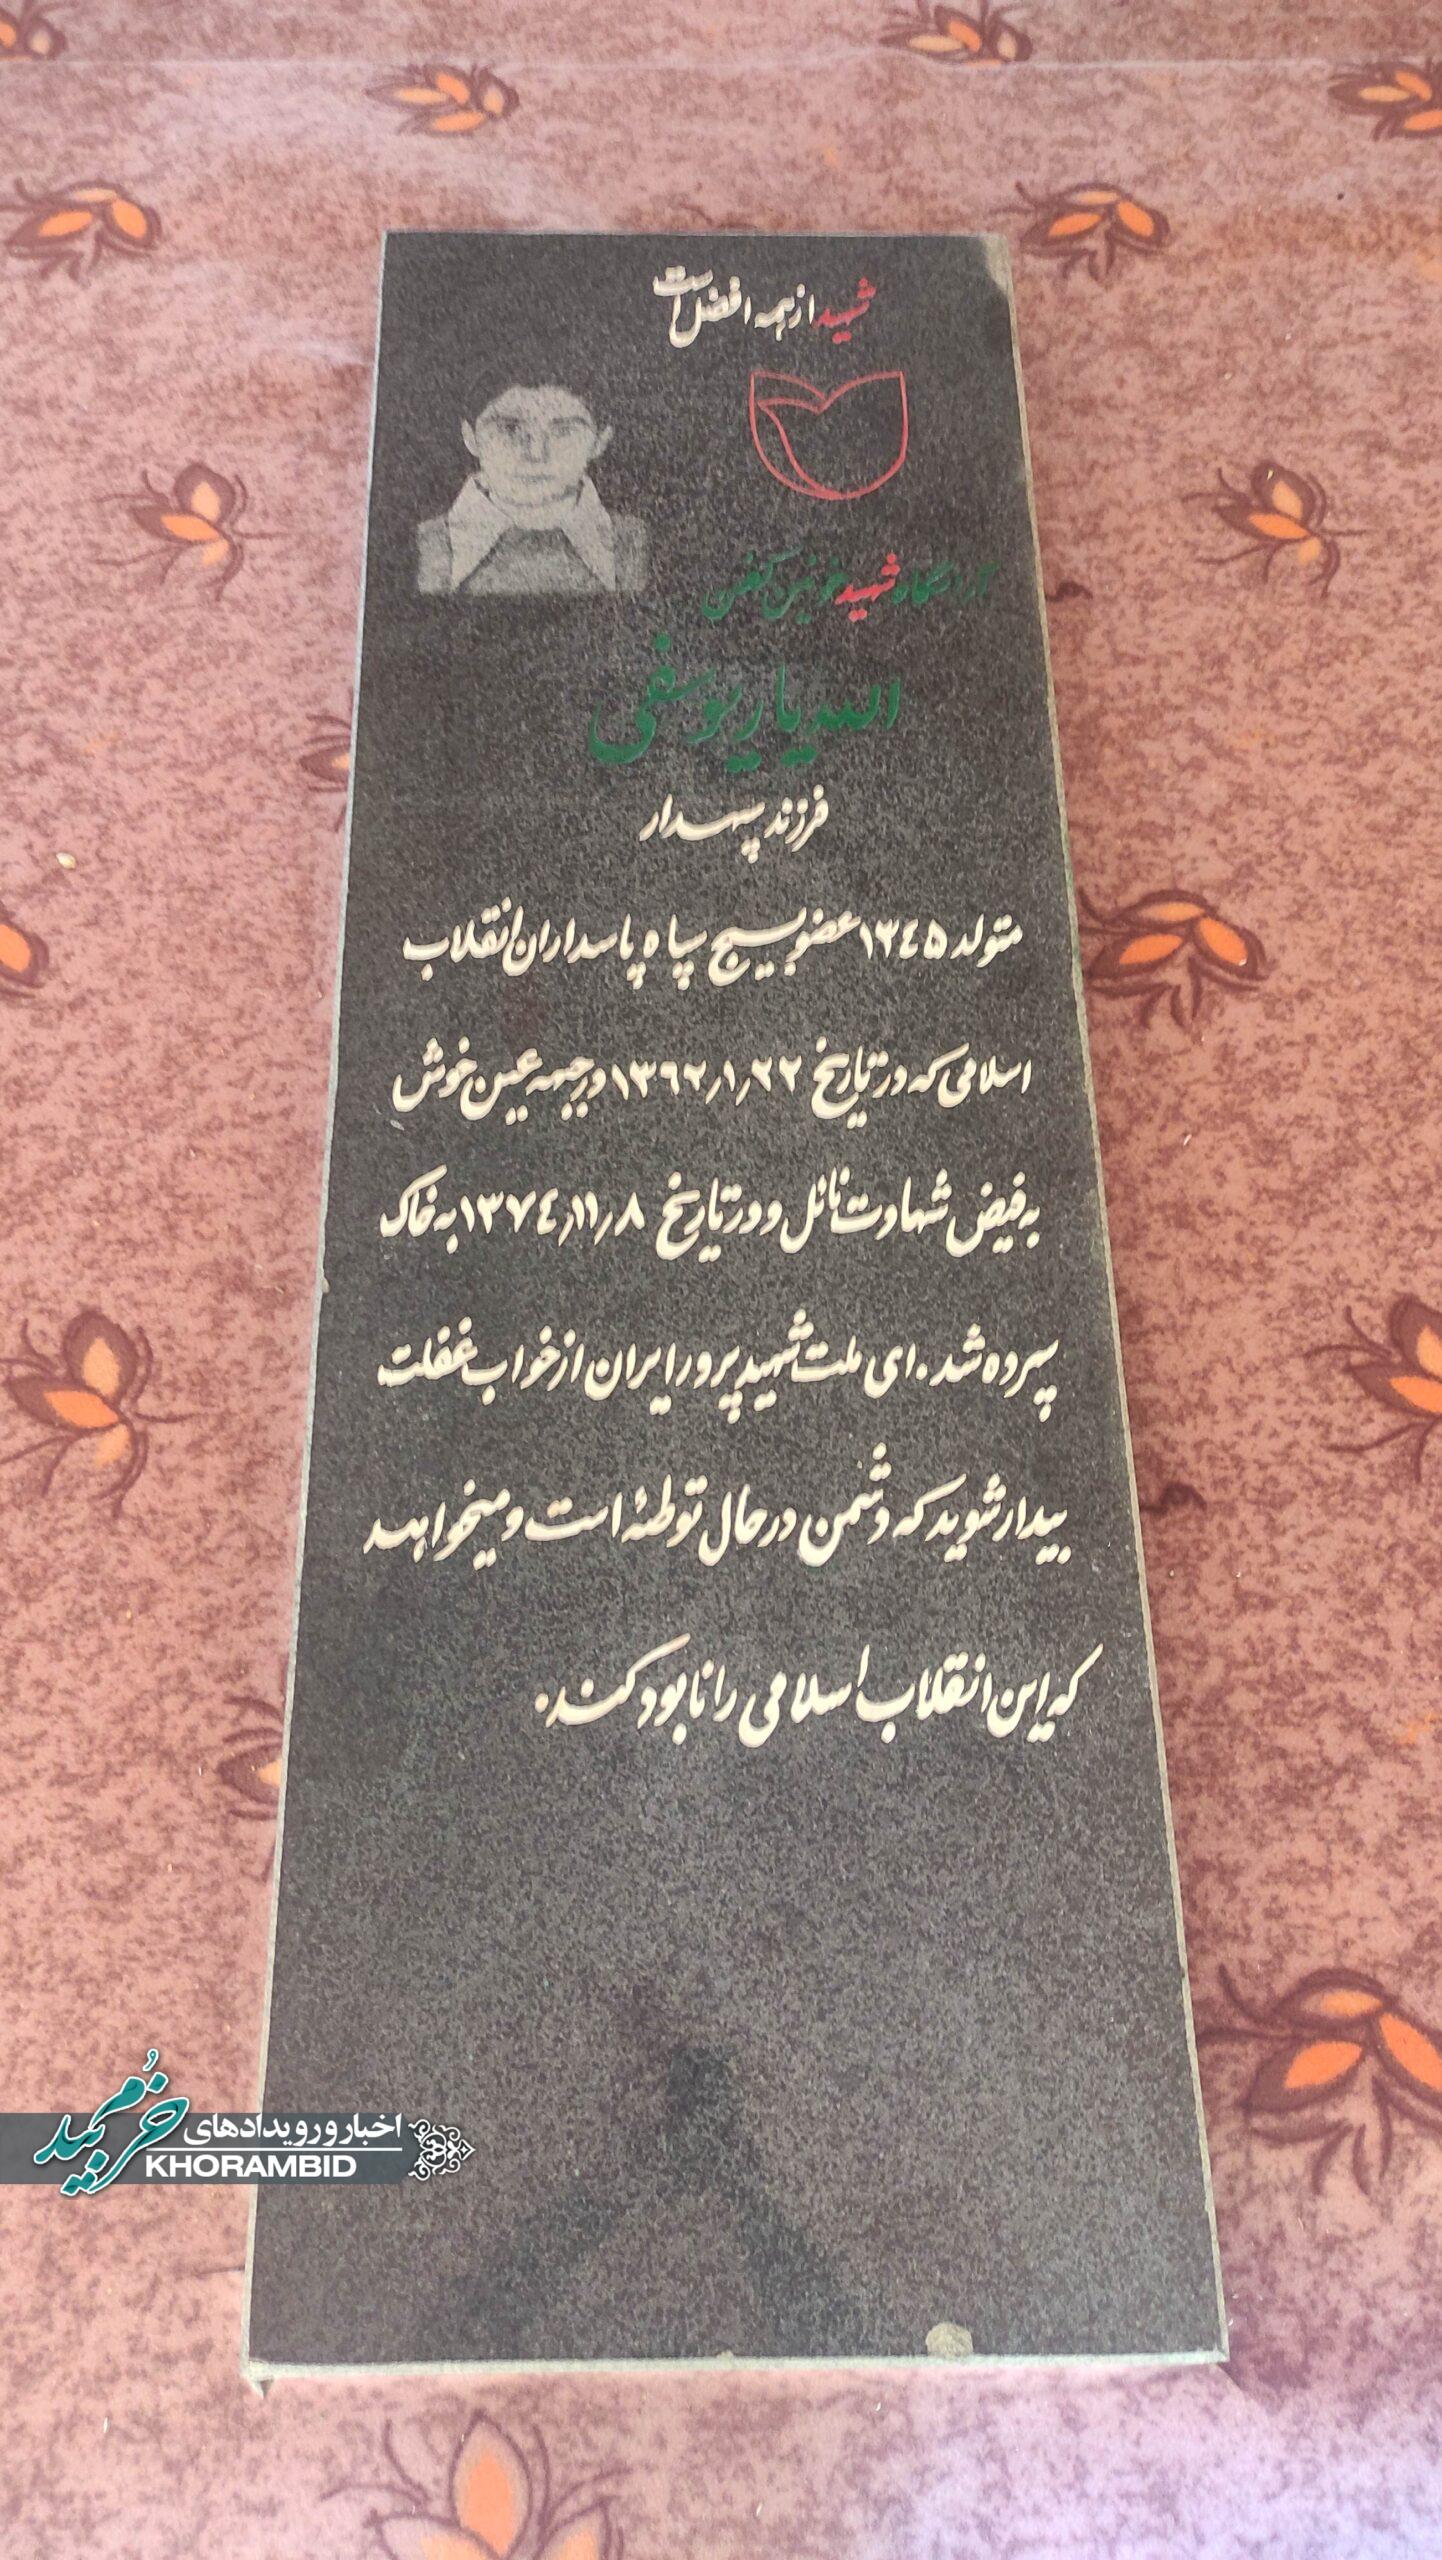 شهید از همه افضل است
آرامگاه شهید خونین کفن
الله یار یوسفی
فرزند سپهدار
متولد ۱۳٤۵ عضو بسیج سپاه پاسداران انقلاب
اسلامی که در تاریخ ۱۳٦۲/۱/۲۲ در جبهه عین خوش
به فیض شهادت نائل و در تاریخ ۱۳۷٤/۱۱/۸ به خاک
سپرده شد. ای ملت شهید پرور ایران از خواب غفلت
بیدار شوید که دشمن در حال توطئه است و میخواهد
که این انقلاب اسلامی را نابود کند.
اخبار و رویدادهای
خرمبید
KHORAMBID